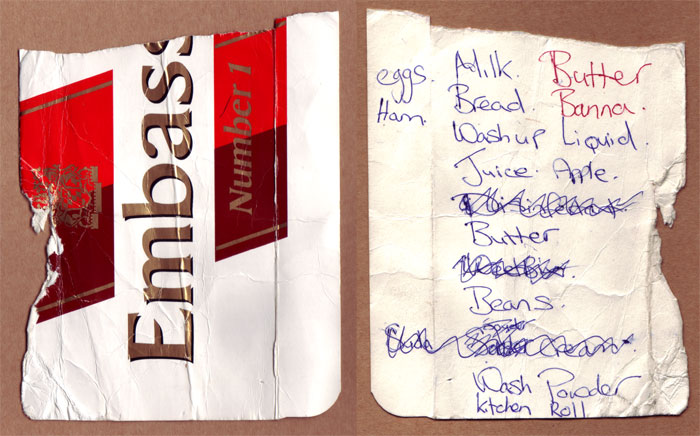 Embass
Number 1
eggs. Milk. Butter
Ham. Bread. Banna.
Wash up Liquid.
Juice Apple.
Butter
Beans.
Wash Powder
Kitchen Roll